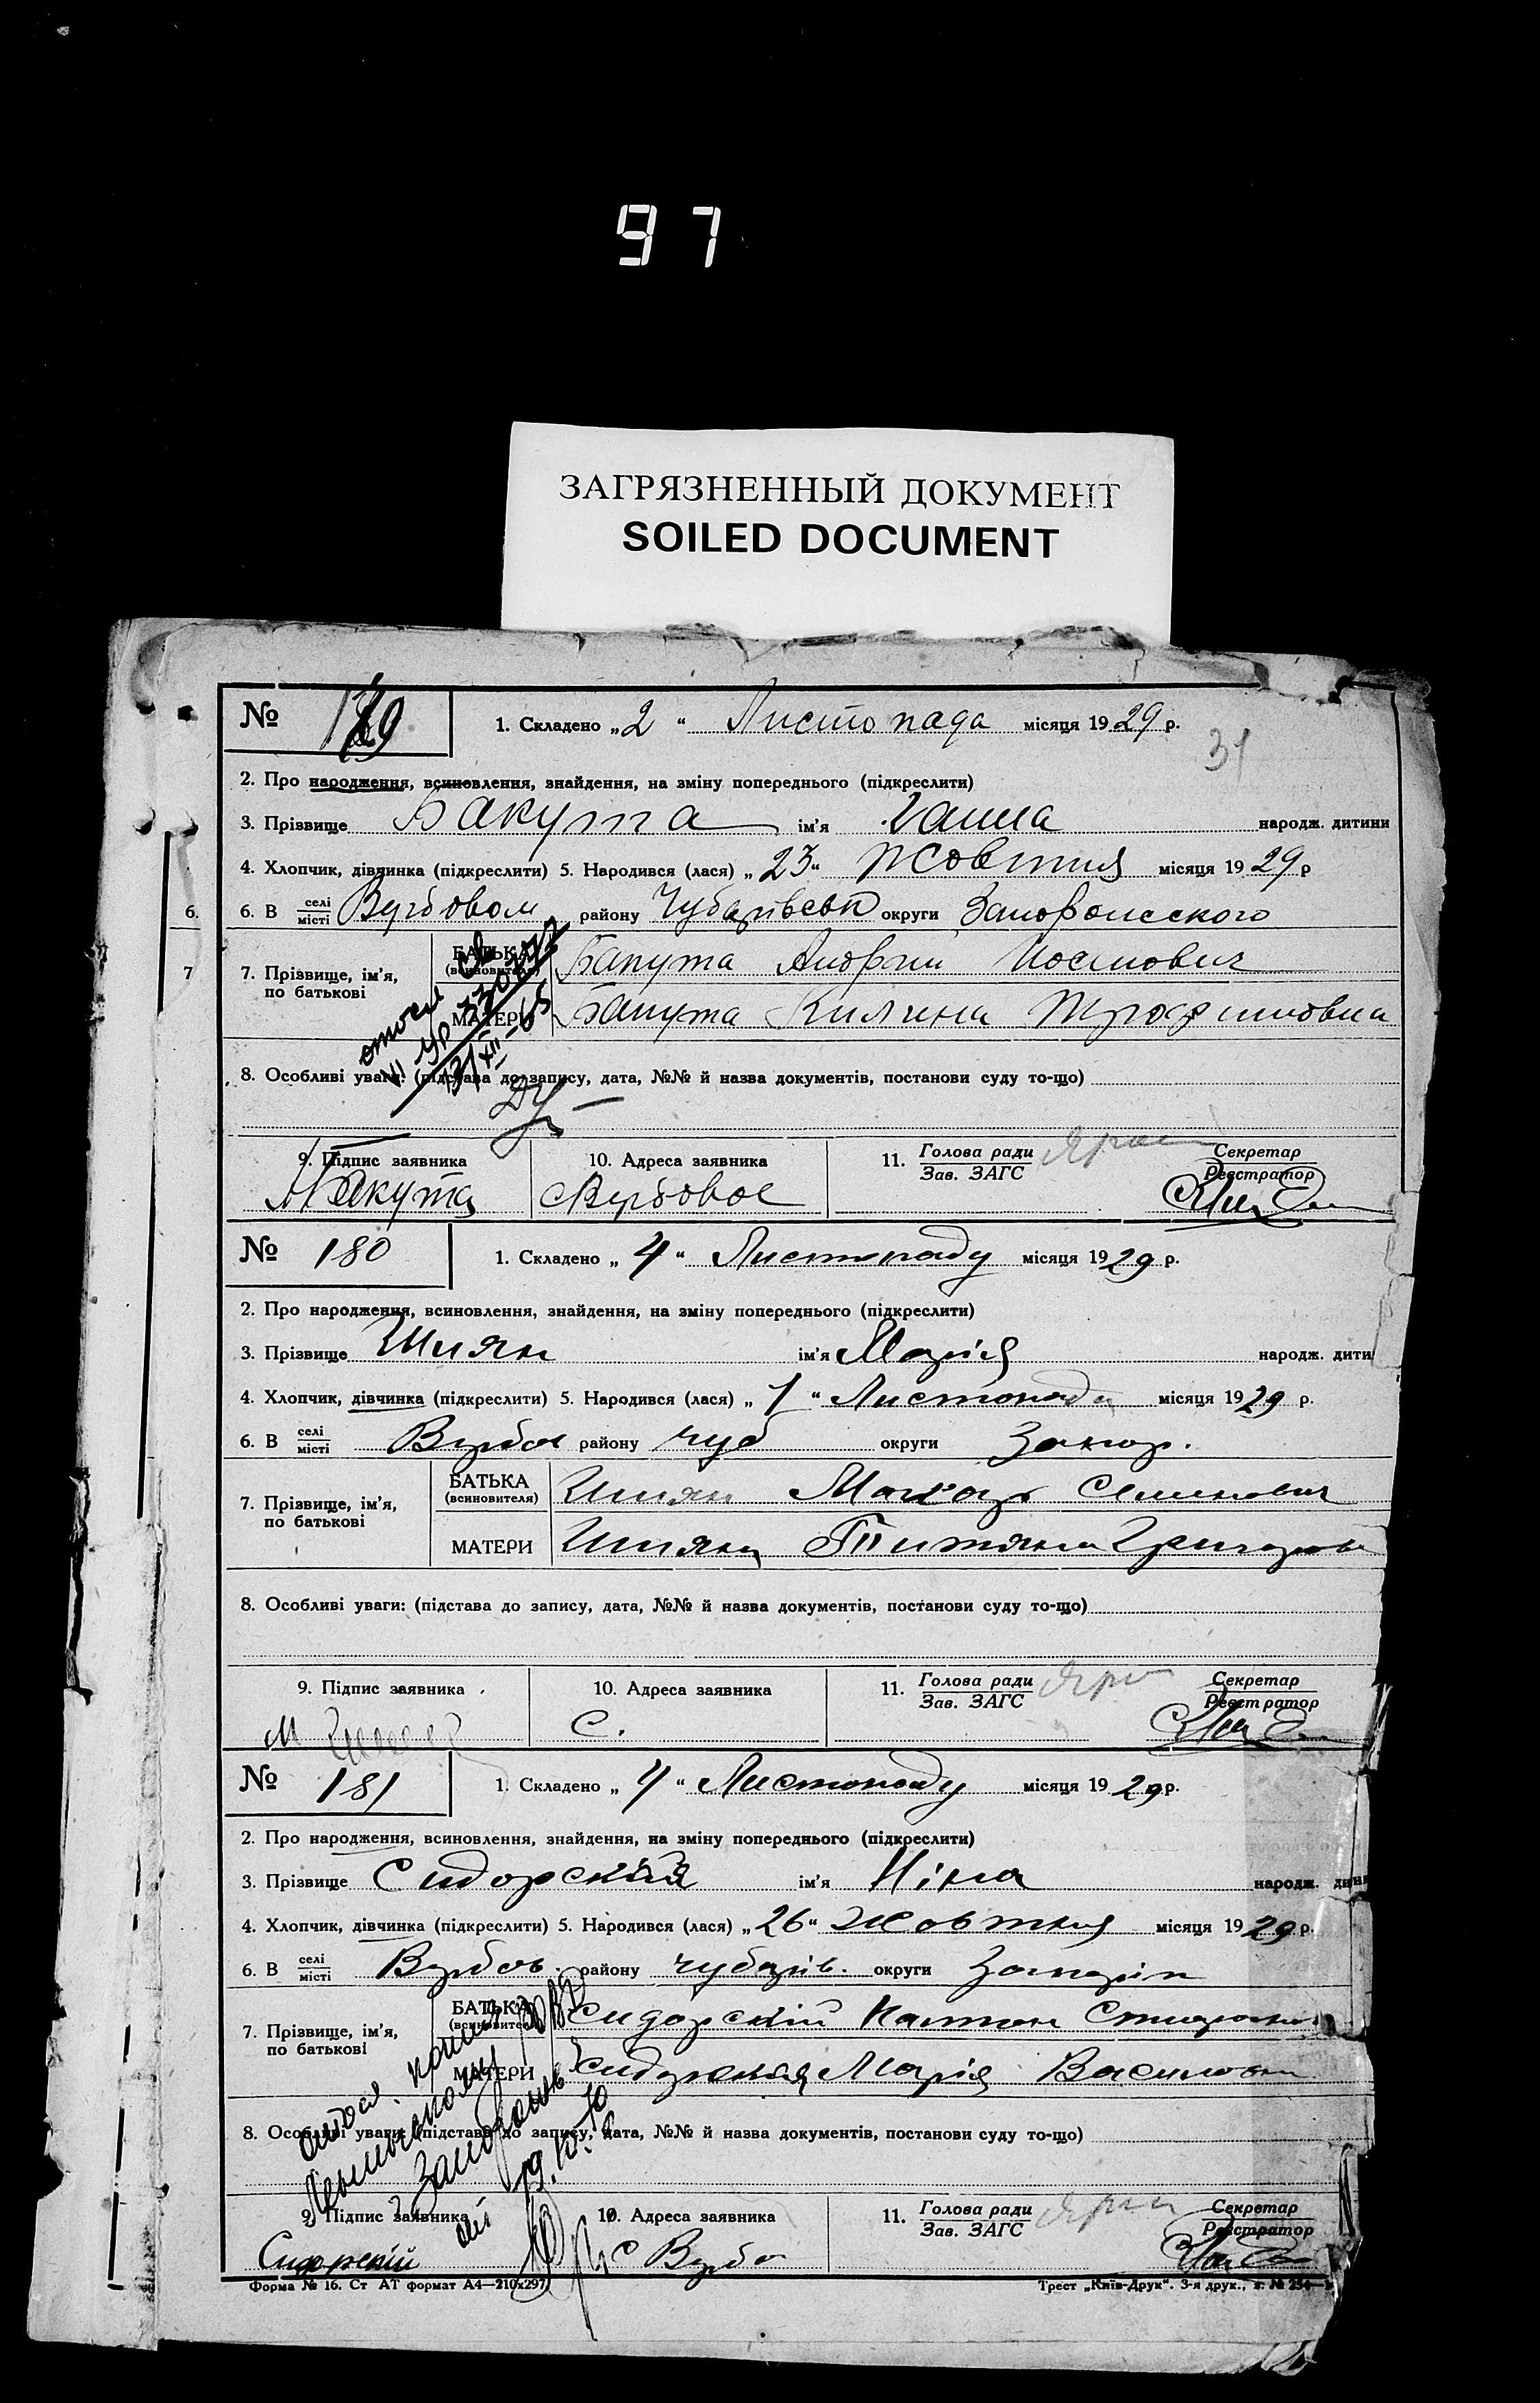 97
ЗАГРЯЗНЕННЫЙ ДОКУМЕНТ
SOILED DOCUMENT
№ 179
1. Складено „2“ Листопада місяця 1929 р.
31
2. Про народження, всиновлення, знайдення, на зміну попереднього (підкреслити)
3. Прізвище Бакута ім'я Ганна народж. дитини
4. Хлопчик, дівчинка (підкреслити) 5. Народився (лася) „23“ Жовтня місяця 1929 р
6.
6. В селі/місті Вербовом району Чубарівськ округи Запорожского
7
7. Прізвище, ім'я, по батькові
БАТЬКА (всиновителя) Бакута Андрій Йосипович
МАТЕРИ Бакута Килина Трофимовна
8. Особливі уваги: (підстава до запису, дата, №№ й назва документів, постанови суду то-що)
9. Підпис заявника
10. Адреса заявника
11. Голова ради/Зав. ЗАГС
Секретар/Реєстратор
Бакута
Вербовое
№ 180
1. Складено „4“ Листопаду місяця 1929 р.
2. Про народження, всиновлення, знайдення, на зміну попереднього (підкреслити)
3. Прізвище Шиян ім'я Марія народж. дити
4. Хлопчик, дівчинка (підкреслити) 5. Народився (лася) „1“ Листопада місяця 1929 р.
6. В селі/місті Вербов району Чуб округи Запор.
7. Прізвище, ім'я, по батькові
БАТЬКА (всиновителя) Шиян Макар Семенович
МАТЕРИ Шияна Титяна Григоров
8. Особливі уваги: (підстава до запису, дата, №№ й назва документів, постанови суду то-що)
9. Підпис заявника
10. Адреса заявника
11. Голова ради/Зав. ЗАГС
Секретар/Реєстратор
М
С.
№ 181
1. Складено „4“ Листопаду місяця 1929 р.
2. Про народження, всиновлення, знайдення, на зміну попереднього (підкреслити)
3. Прізвище Сидорскій ім'я Ніна народж. дини
4. Хлопчик, дівчинка (підкреслити) 5. Народився (лася) „26“ Жовтня місяця 1929 р.
6. В селі/місті Вербов. району чубарів. округи Запоріж
7. Прізвище, ім'я, по батькові
БАТЬКА (всиновителя) Сидорскій
МАТЕРИ Сидорская Марія Василовна
8. Особливі уваги: (підстава до запису, дата, №№ й назва документів, постанови суду то-що)
9. Підпис заявника
10. Адреса заявника
11. Голова ради/Зав. ЗАГС
Секретар/Реєстратор
Сидорскій
с Вербо
Форма № 16. Ст АТ формат А4—210х297
Трест „Київ-Друк“. 3-я друк., з. № 254—